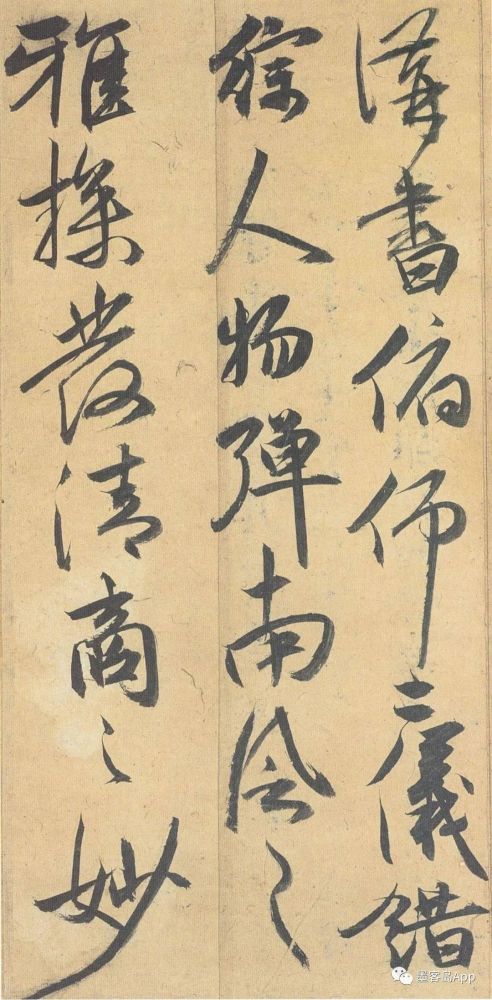 講書俯仰二儀錯
綜人物彈南風之
雅操發清商之妙
墨客岛App